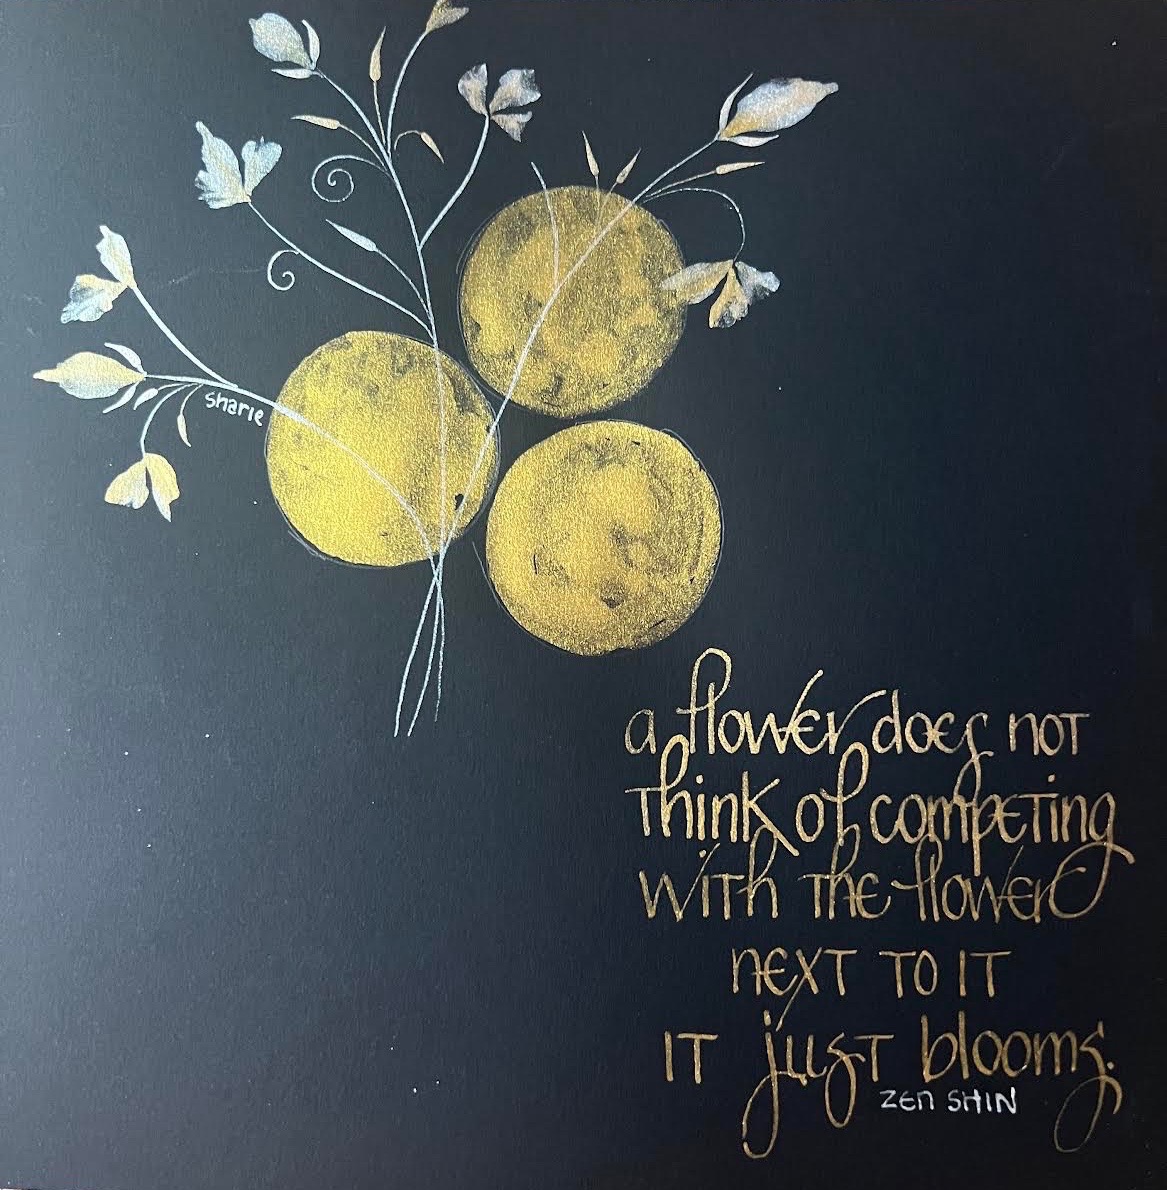 sharie
a flower does not
think of competing
with the flower
next to it
it just blooms.
zen shin